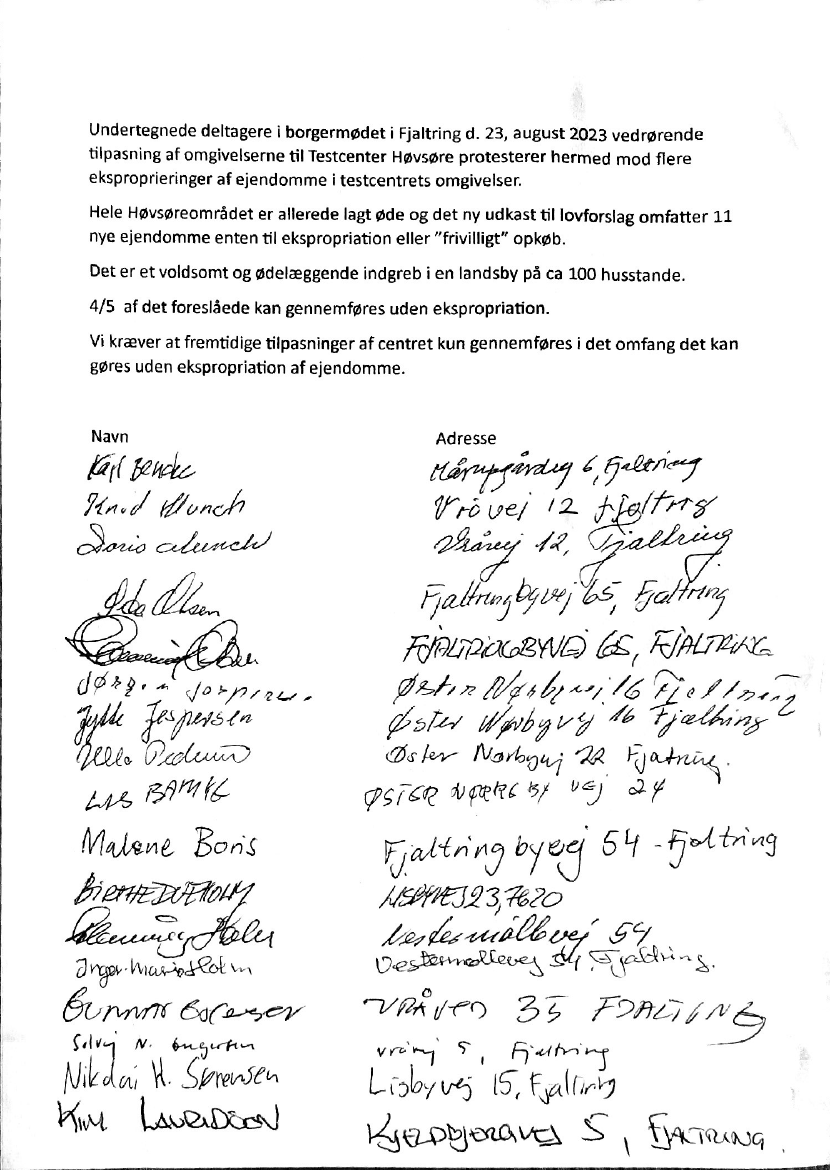 Undertegnede deltagere i borgermødet i Fjaltring d. 23, august 2023 vedrørende
tilpasning af omgivelserne til Testcenter Høvsøre protesterer hermed mod flere
eksproprieringer af ejendomme i testcentrets omgivelser.
Hele Høvsøreområdet er allerede lagt øde og det ny udkast til lovforslag omfatter 11
nye ejendomme enten til ekspropriation eller ”frivilligt” opkøb.
Det er et voldsomt og ødelæggende indgreb i en landsby på ca 100 husstande.
4/5 af det foreslåede kan gennemføres uden ekspropriation.
Vi kræver at fremtidige tilpasninger af centret kun gennemføres i det omfang det kan
gøres uden ekspropriation af ejendomme.
Navn Adresse
6, Fjaltring
Knud Munch Vråvej 12 Fjaltrg
Doris Munch Vråvej 12, Fjaltring
Olsen Fjaltringbyvej 65, Fjaltring
65, FJALTRING
Øster Nørbyvej 16 Fjeltring
Jytte Jespersen Øster Nørbyvej 16 Fjaltring
Ulla Øster Nørbyvej 22 Fjatring.
ØSTER VEJ 24
Malene Boris Fjaltring byvej 54 - Fjaltring
BIRTHE DUEHOLM 23, 7620
Flemming Holm Vestermøllevej 54
Inger-Marie Holm Vestermøllevej 54, Fjaltring.
35
Solvej N. 5, Fjaltring
Nikolai H. Sørensen Lisbyvej 15, Fjaltring
KIM LAURIDSEN 5, FJALTRING.